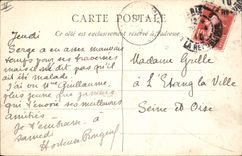 CARTE POSTALE
Ce côté est exclusivement réservé à l'adresse
Jeudi
Serge a eu assez mauvais
temps pour ses traversées
mais il ne dit pas qu'il
ait été malade
J'ai vu Guillaume
plus jeune que jamais
qui t'envoie ses meilleures
amitiés
Je t'embrasse à
samedi
Madame Grille
à L'Etang la Ville
Seine et Oise